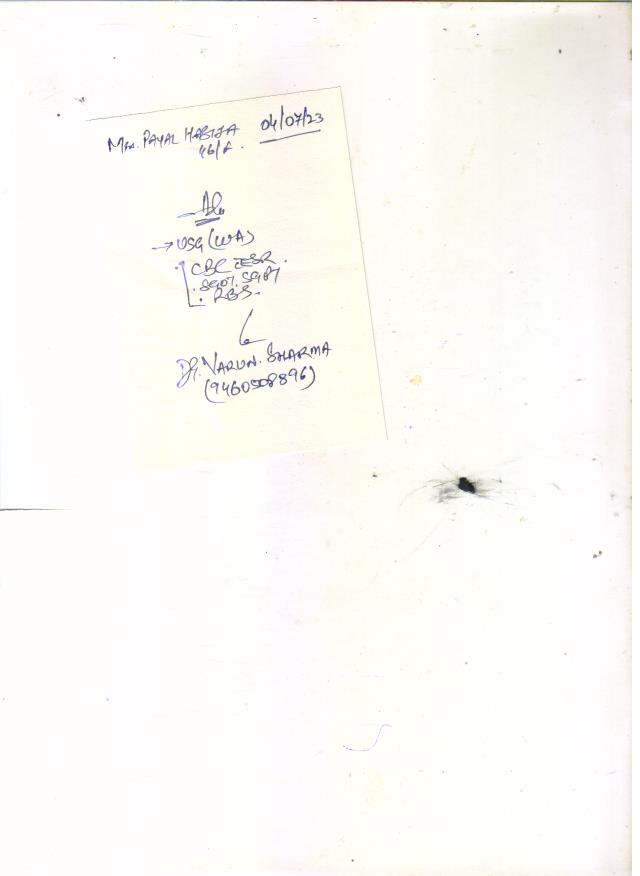 Mrs. PAYAL HABIJA 04/07/23
46/F.
Adv
→ USG (W/A)
. CBC ESR.
. SGOT. SGPT
. RBS.
Dr. VARUN. SHARMA
(9460508896)